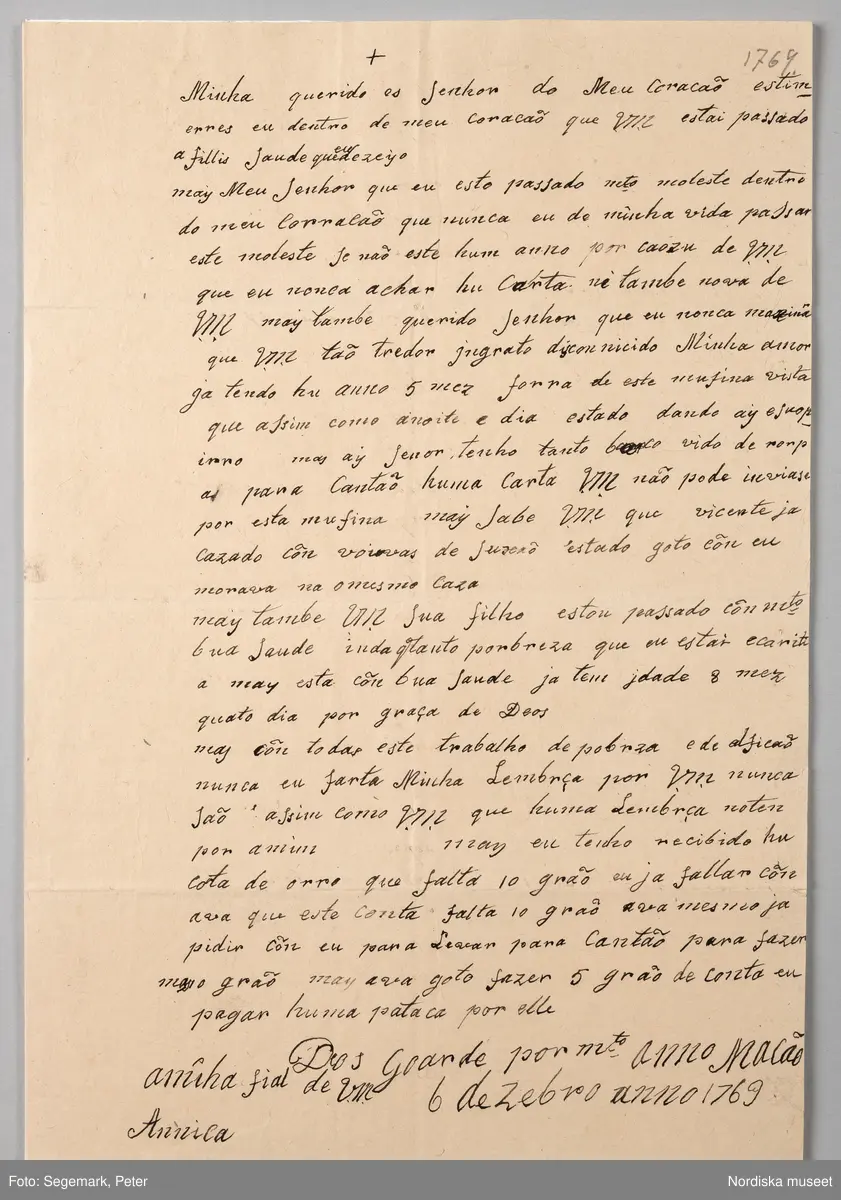 +
1769
Minha querido es Senhor do Meu Coracaõ estim
erres eu dentro de meu coracaõ que VM estai passado
a fillis saude que eu dezeijo
may Meu Senhor que eu esto passado mto moleste dentro
do meu Corracaõ que nunca eu de minha vida passar
este moleste se naõ este hum anno por caozu de VM
que eu nonca achar hu Carta nē tambe nova de
VM may tambe querido Senhor que eu nonca
que VM taõ tredor jngrato disconnicido Minha amor
ja tendo hu anno 5 mez forra de este mufina vista
que assim como anoite e dia estado dando ay
irro mas ay senor tenho tanto vido de romp
as para Cantaõ huma Carta VM naõ pode inviase
por esta mufina may sabe VM que vicente ja
cazado cõn de estado goto cõn eu
morava na omesmo caza
may tambe VM sua filho estou passado cõn mto
bua saude inda tanto porbreza que eu estai
a may esta cõn bua saude ja tem jdade 8 mez
quato dia por graça de Deos
mas cõn todas este trabalho de pobrza e de
nunca eu farta Minha Lembrça por VM nunca
saõ assim como VM que huma Lembrça noten
por amim may eu tenho recibido hu
cota de orro que falta 10 graõ eu ja fallar cõn
ava que este conta falta 10 graõ ava mesmo ja
pidir cõn eu para Levar para Cantaõ para fazer
graõ may ava goto fazer 5 graõ de conta eu
pagar huma pataca por elle
Deos Goarde por mto anno Macão
amiha fial de VM 6 de Zebro anno 1769
Annica
Foto: Segemark, Peter
Nordiska museet